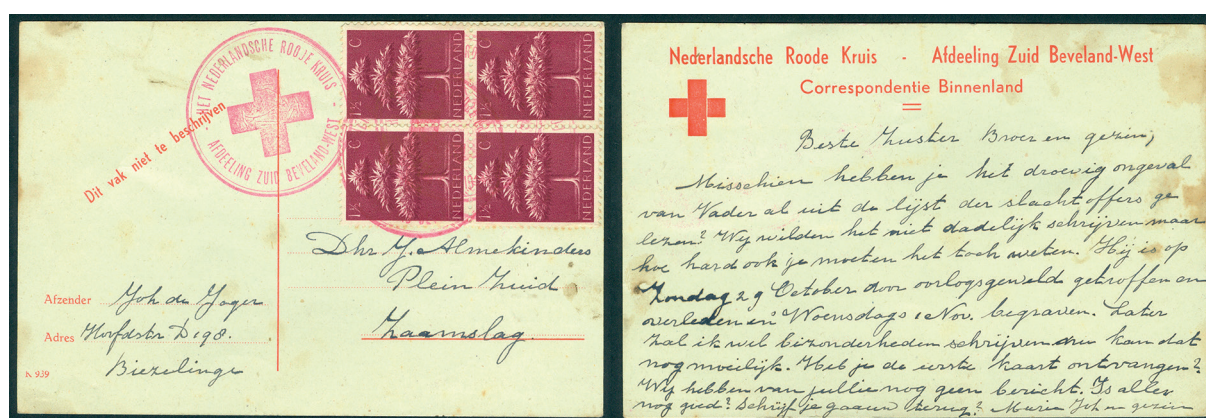 HET NEDERLANDSCHE ROODE KRUIS -
AFDEELING ZUID BEVELAND-WEST
Dit vak niet te beschrijven
1½ C NEDERLAND
1½ C NEDERLAND
1½ C NEDERLAND
1½ C NEDERLAND
Dhr J. Almekinders
Plein Zuid
Zaamslag.
Afzender Joh de Jager
Adres Hoofdstr D 98.
Biezelinge
K 939
Nederlandsche Roode Kruis - Afdeeling Zuid Beveland-West
Correspondentie Binnenland
Beste Zuster Broer en gezin,
Misschien hebben je het droevig ongeval
van Vader al uit de lijst der slachtoffers ge
lezen? Wij wilden het niet dadelijk schrijven maar
hoe hard ook je moeten het toch weten. Hij is op
Zondag 29 October door oorlogsgeweld getroffen en
overleden en Woensdags 1 Nov. begraven. Later
zal ik wel bizonderheden schrijven nu kan dat
nog moeilijk. Heb je de eerste kaart ontvangen?
Wij hebben van jullie nog geen bericht. Is alles
nog goed? Schrijf je gauw terug? Joh en gezin